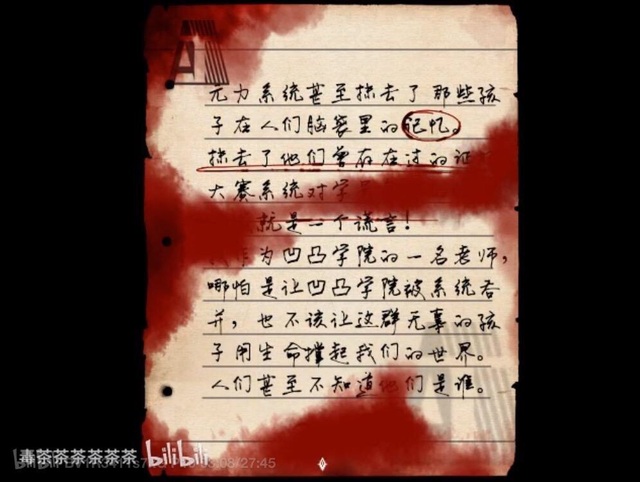 元力系统甚至抹去了那些孩
子在人们脑袋里的记忆。
抹去了他们曾存在过的证
大赛系统对学
就是一个谎言！
作为凹凸学院的一名老师，
哪怕是让凹凸学院被系统吞
并，也不该让这群无辜的孩
子用生命撑起我们的世界。
人们甚至不知道他们是谁。
毒茶茶茶茶茶茶 bilibili
/27:45